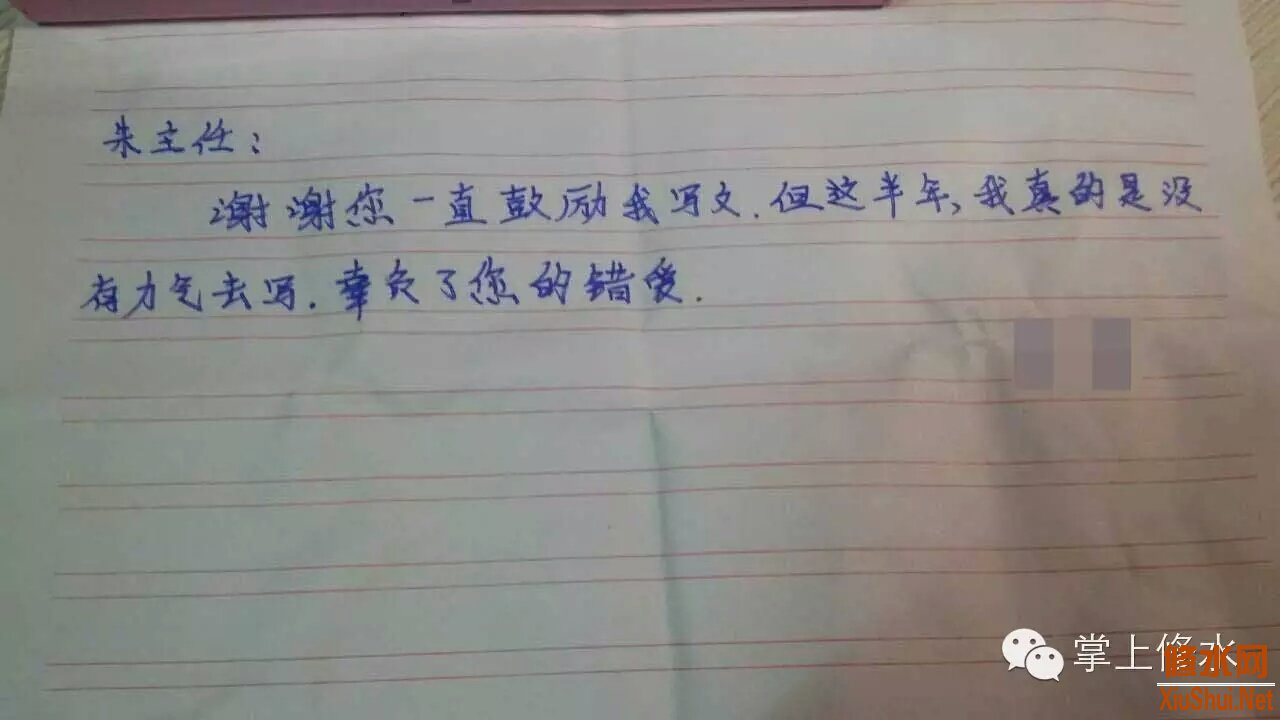 朱主任：
谢谢您一直鼓励我写文.但这半年,我真的是没
有力气去写.辜负了您的错爱.
掌上修水
修水网
XiuShui.Net